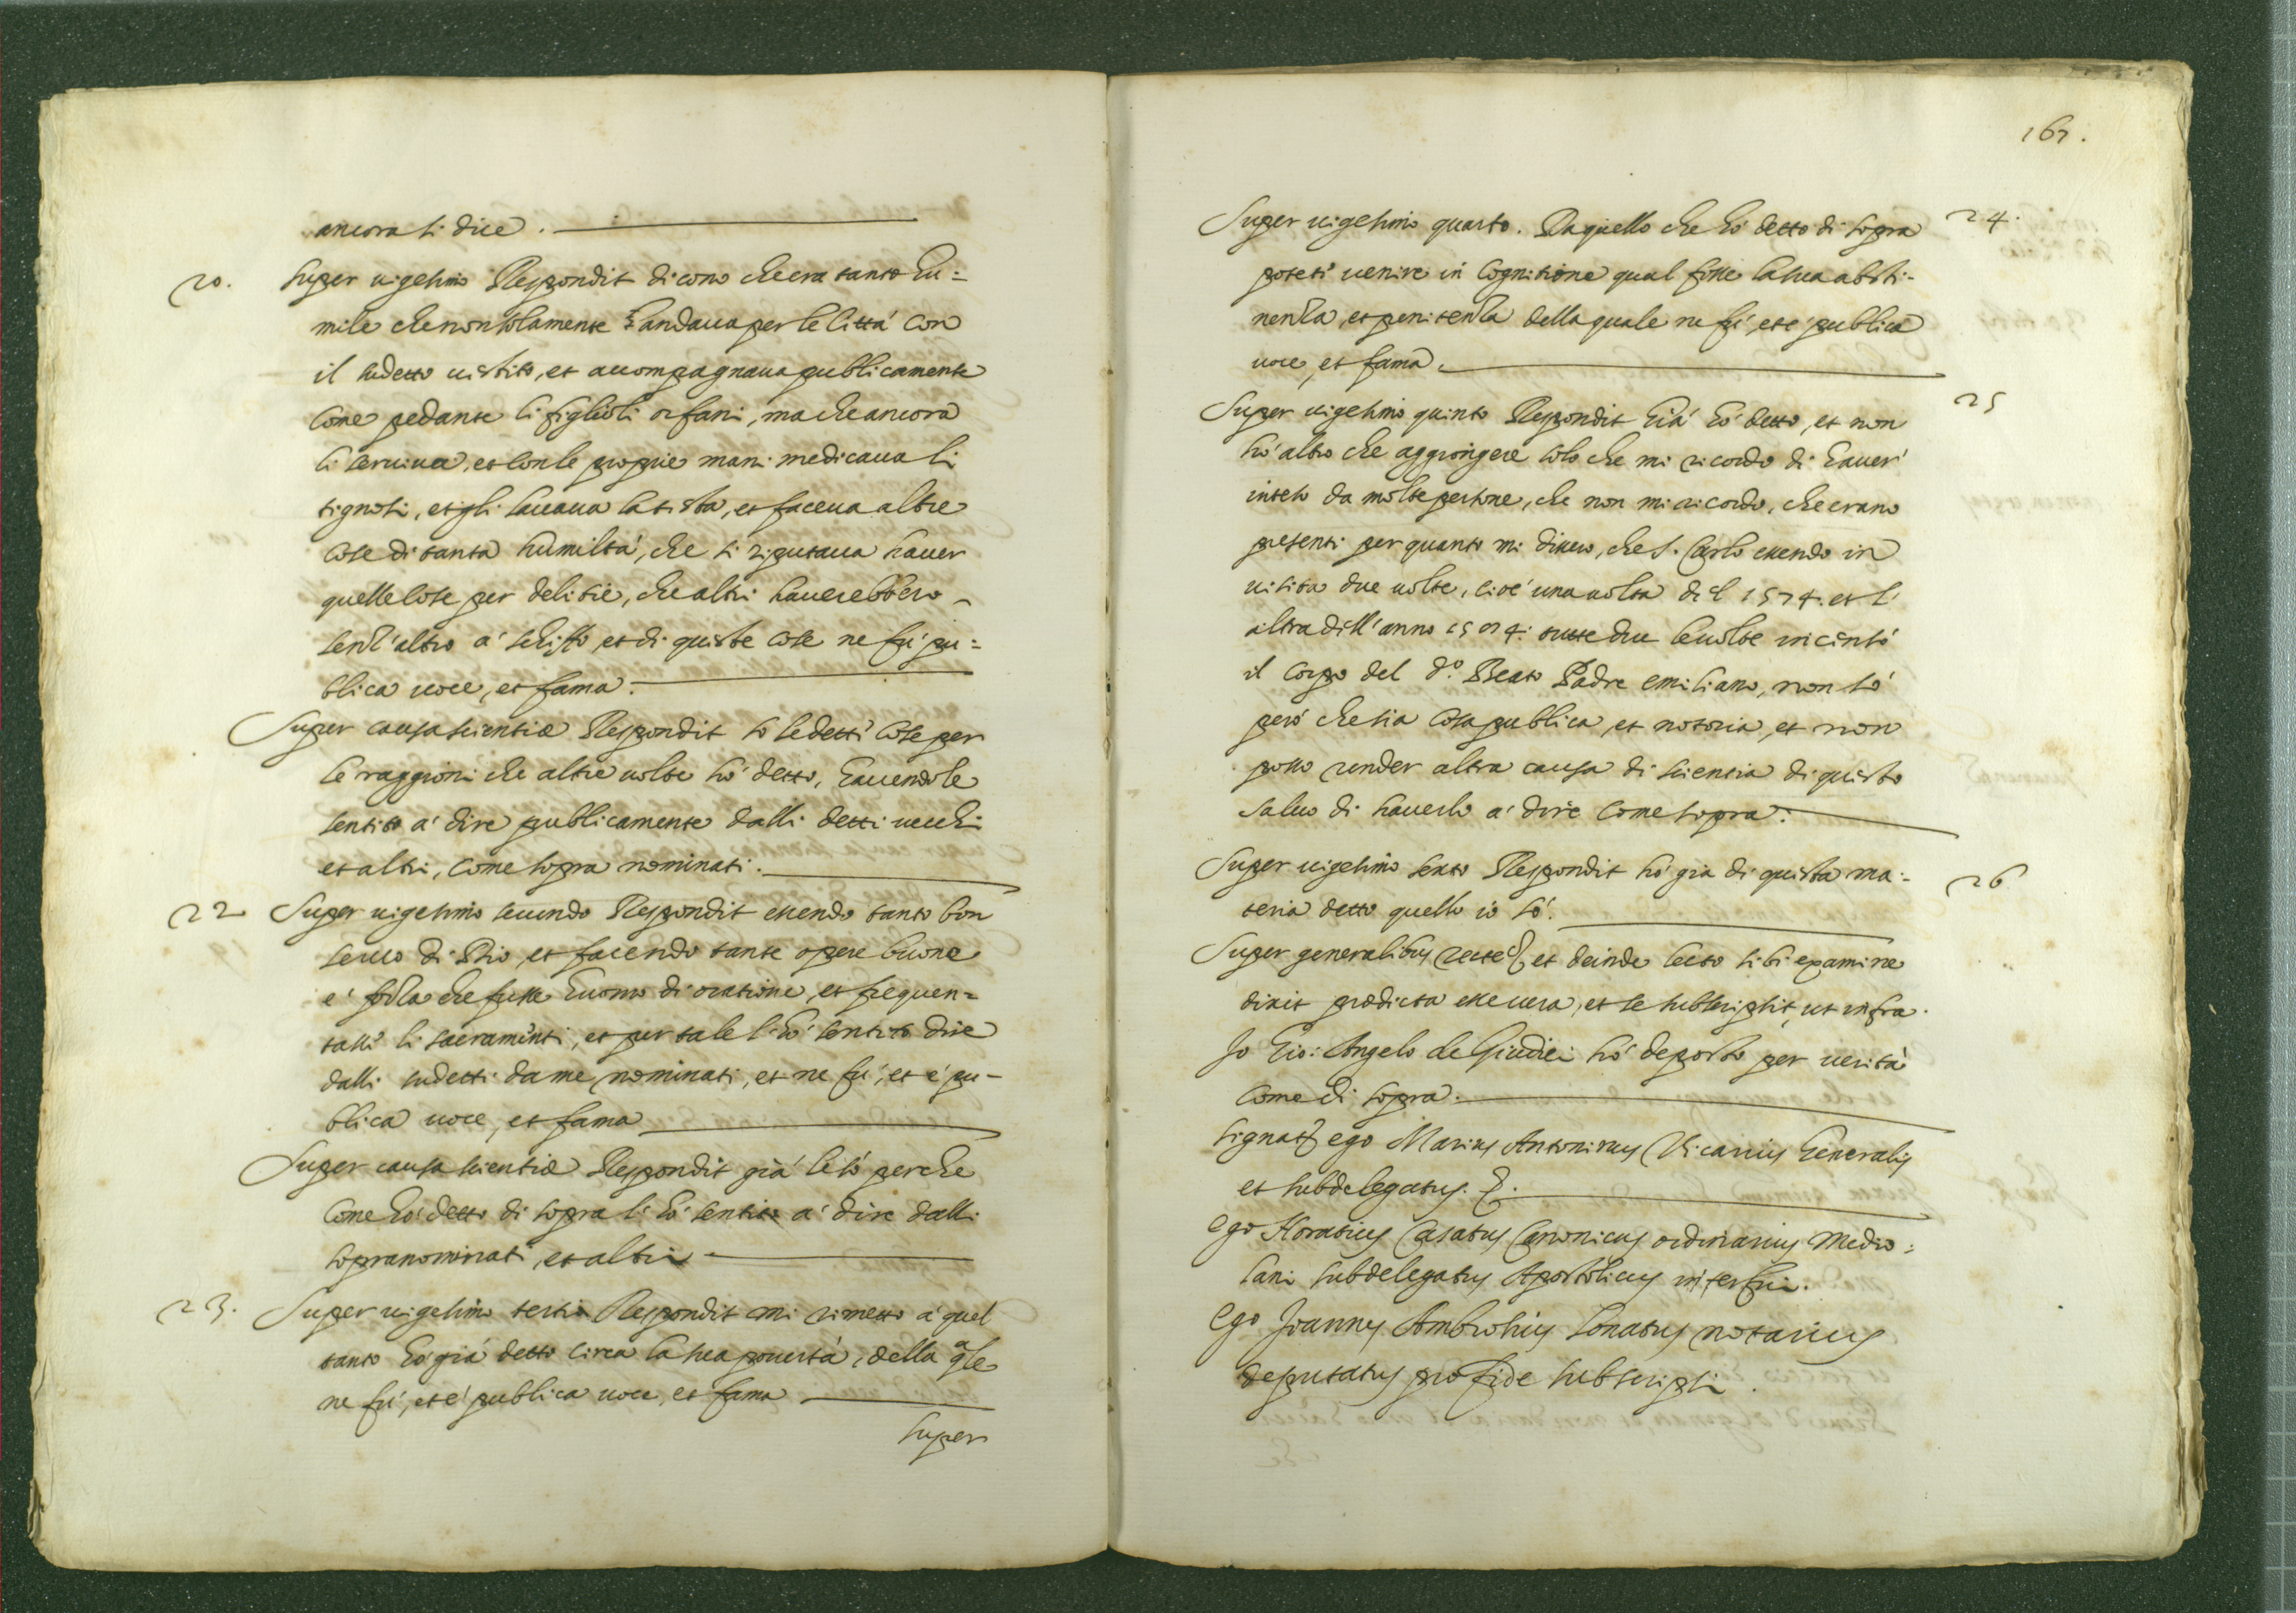 ancora si dice.
20. Super uigesimo Respondit dicono che era tanto hu=
mile che non solamente andaua per le Città con
il sudetto uistito, et accompagnaua publicamente
come pedante li figlioli orfani, ma che ancora
li seruiua, et con le proprie mani medicaua li
tignosi, et gli lauaua la tista, et faceua altre
cose di tanta humiltà, che si riputaua hauer
quelle cose per delitie, che altri hauerebbero
senz'altro à schiffo, et di quiste cose ne fù pu=
blica uoce, et fama.
Super causa scientiæ Respondit sò le detti cose per
le raggioni che altre uolte hò detto, hauendole
sentito à dire publicamente dalli detti uecchi
et altri, come sopra nominati.
22 Super uigesimo secundo Respondit essendo tanto bon
seruo di Dio, et facendo tante opere buone
è forza che fusse huomo di oratione, et frequen=
tassi li sacraminti, et per tale l'hò sentito dire
dalli sudetti da me nominati, et ne fù, et è pu-
blica uoce, et fama
Super causa scientiæ Respondit già le sò perche
come hò detto di sopra li hò sentito à dire dalli
sopranominati, et altri
23. Super uigesimo tertio Respondit mi rimetto à quel
tanto hò già detto circa la sua pouertà, della qle
ne fù, et è publica uoce, et fama
Super
167.
Super uigesimo quarto. Da quello che hò detto di sopra 24.
poteti uenire in cognitione qual fosse la sua absti-
nenza, et penitenza della quale ne fù, et è publica
uoce, et fama.
Super uigesimo quinto Respondit Già hò detto, et non 25
hò altro che aggiongere solo che mi ricordo di hauer
inteso da molte persone, che non mi ricordo, che erano
presenti per quanto mi dissero, che S. Carlo essendo in
uisita due uolte, cioè una uolta dil 1574. et l'
altra dill'anno tutte due le uolte incensò
il corpo del d.º Beato Padre emiliano, non sò
però che sia cosa publica, et notoria, et non
posso render altra causa di scientia di quisto
saluo di hauerlo à dire come sopra.
Super uigesimo sexto Respondit hò già di quista ma- 26
teria detto quello io sò.
Super generalibus recte et deinde lecto sibi examine
dixit prædicta esse uera, et se subscripsit, ut infra.
Io Gio: Angelo de Giudici hò deposto per uerità
come di sopra.
signat ego Marius Antoninus Vicarius Generalis
et subdelegatus.
Ego Horatius Casatus Canonicus ordinarius Medio=
lani subdelegatus Apostolicus interfui.
Ego Joannes Ambrosius Lonatus notarius
deputatus pro fide subscripsi.